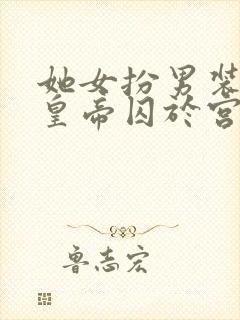 她女扮男装
皇帝囚於宫
鲁志宏